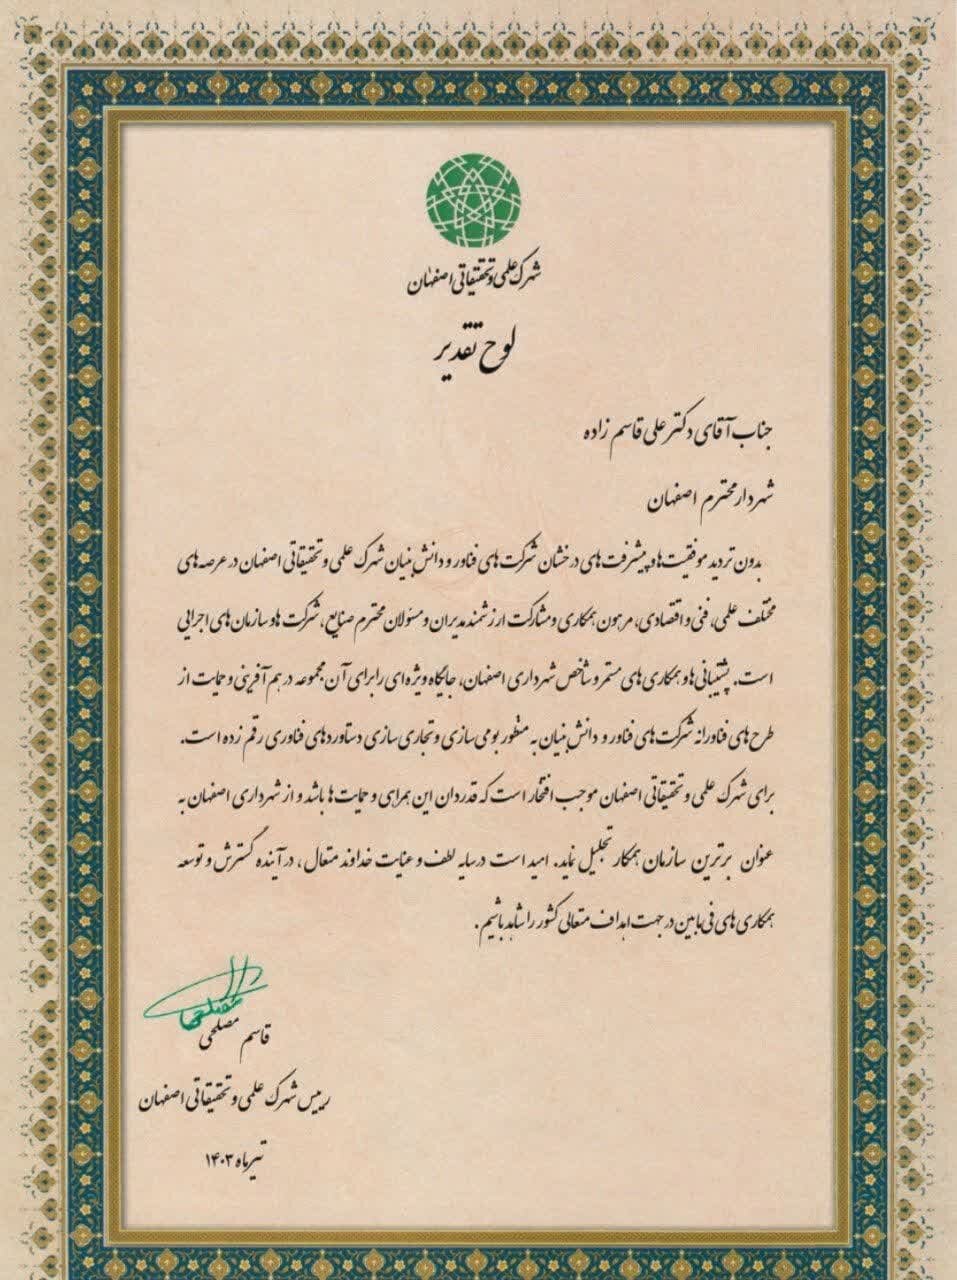 شهرک علمی و تحقیقاتی اصفهان
لوح تقدیر
جناب آقای دکتر علی قاسم زاده
شهردار محترم اصفهان
بدون تردید موفقیت‌ها و پیشرفت‌های درخشان شرکت‌های فناور و دانش‌بنیان شهرک علمی و تحقیقاتی اصفهان در عرصه‌های
مختلف علمی، فنی و اقتصادی، مرهون همکاری و مشارکت ارزشمند مدیران و مسئولان محترم صنایع، شرکت‌ها و سازمان‌های اجرایی
است. پشتیبانی‌ها و همکاری‌های مستمر و شاخص شهرداری اصفهان، جایگاه ویژه‌ای را برای آن مجموعه در هم‌آفرینی و حمایت از
طرح‌های فناورانه شرکت‌های فناور و دانش‌بنیان به منظور بومی سازی و تجاری سازی دستاوردهای فناوری رقم زده است.
برای شهرک علمی و تحقیقاتی اصفهان موجب افتخار است که قدردان این همراهی و حمایت‌ها باشد و از شهرداری اصفهان به
عنوان برترین سازمان همکار تجلیل نماید. امید است در سایه لطف و عنایت خداوند متعال، در آینده گسترش و توسعه
همکاری‌های فی مابین در جهت اهداف متعالی کشور را شاهد باشیم.
قاسم مصلحی
رییس شهرک علمی و تحقیقاتی اصفهان
تیرماه ۱۴۰۳